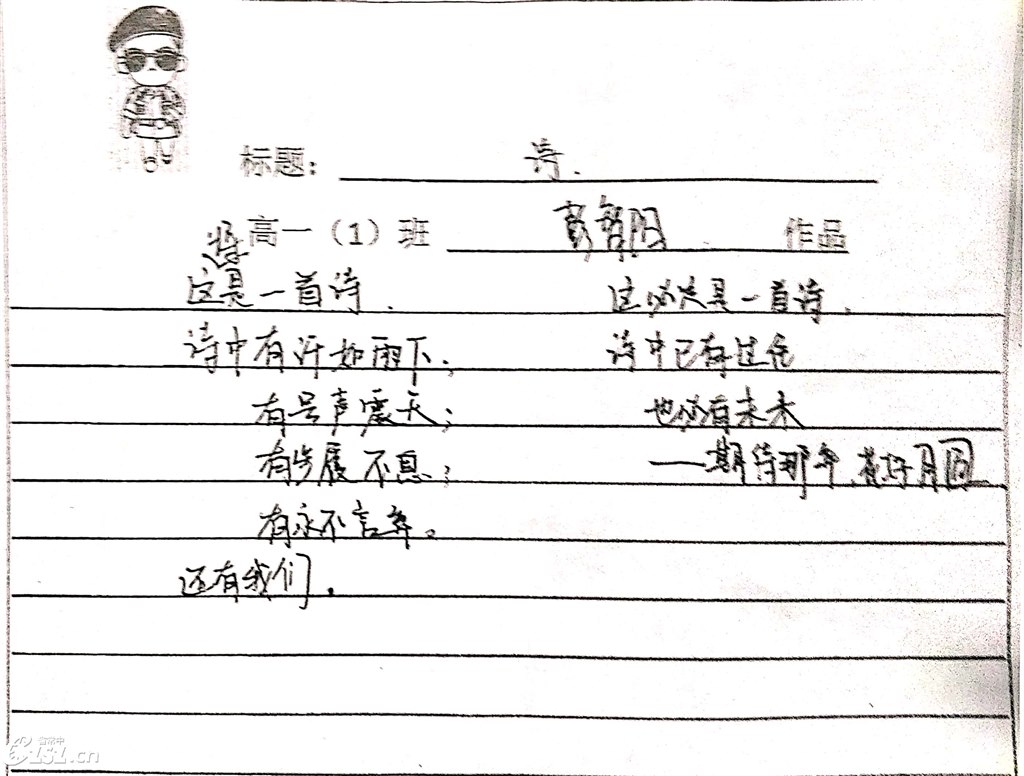 标题：诗.
高一（1）班 彭智阳 作品
这是一首诗.
诗中有汗如雨下；
有号声震天；
有步履不息；
有永不言弃。
还有我们.
这必然是一首诗.
诗中已有过先
也必有未木
——期待那年,花好月圆
.cn